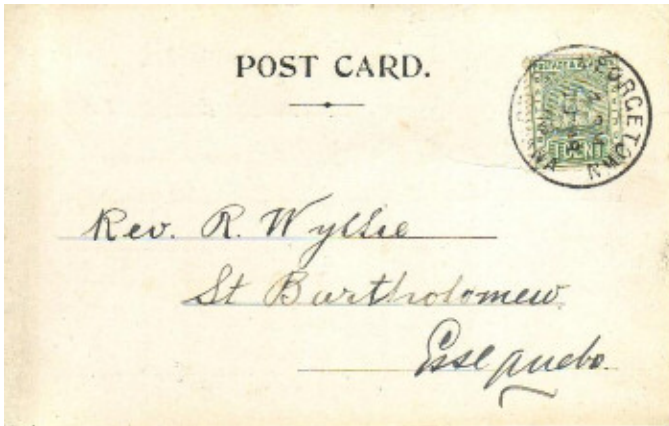 POST CARD.
GEORGETOWN
1 CENT
Rev. R. Wyllie
St Bartholomew
Essequebo.